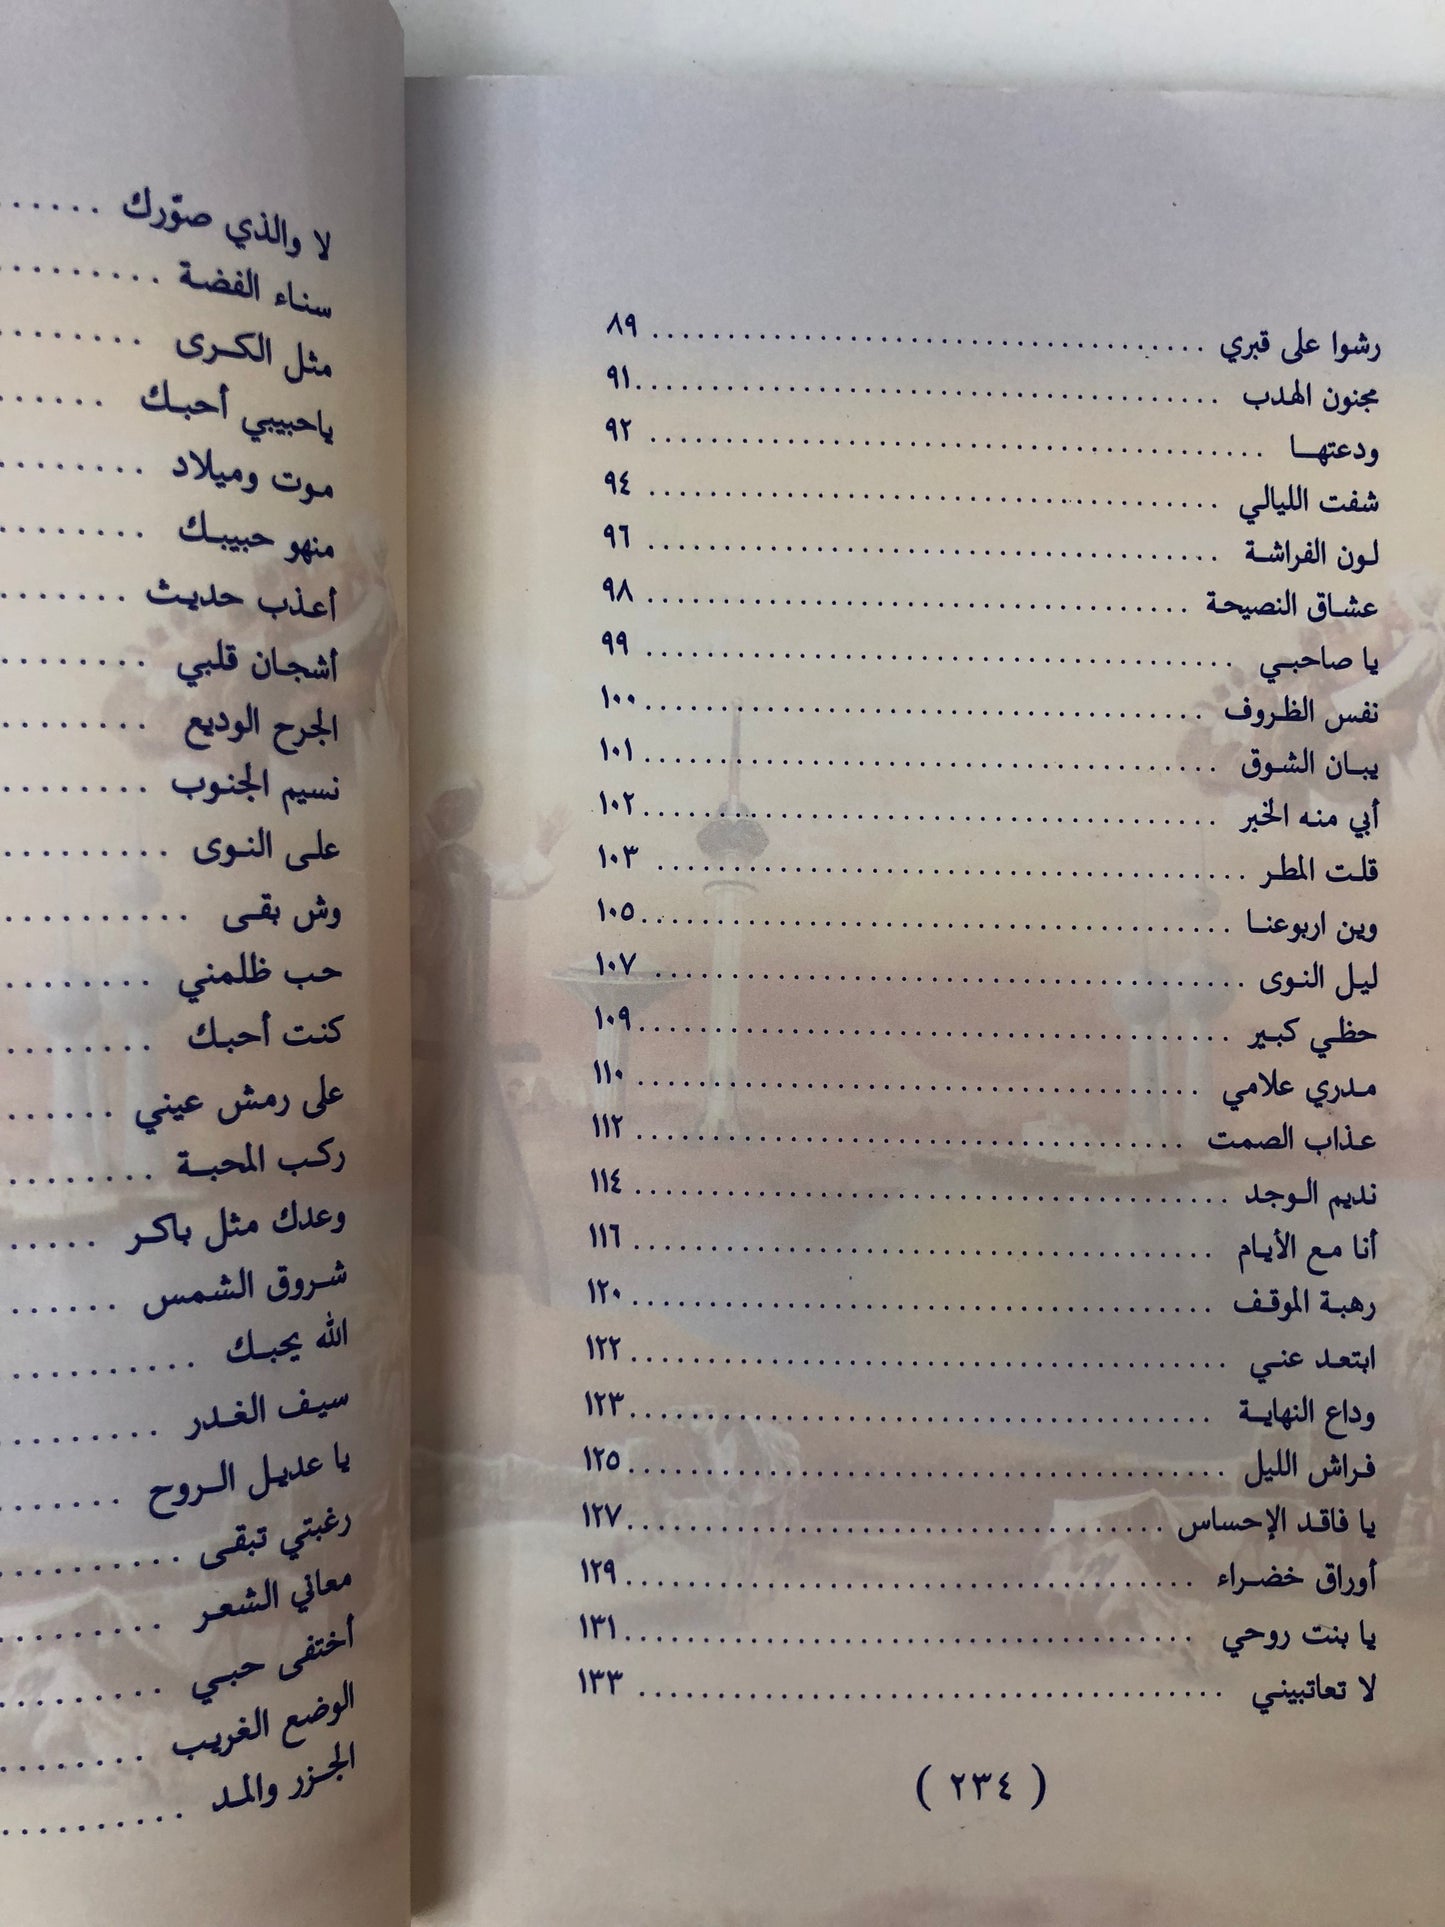 رشوا على قبري ........................................ ٨٩
مجنون الهدب ........................................ ٩١
ودعتهـــا ........................................ ٩٢
شفت الليالي ........................................ ٩٤
لـون الفراشـة ........................................ ٩٦
عشـاق النصيحـة ........................................ ٩٨
يا صاحبـي ........................................ ٩٩
نفس الظـروف ........................................ ١٠٠
يبـان الشـوق ........................................ ١٠١
أبي منـه الخبر ........................................ ١٠٢
قلـت المطـر ........................................ ١٠٣
وين اربوعنـا ........................................ ١٠٥
ليـل النـوى ........................................ ١٠٧
حظـي كبـير ........................................ ١٠٩
مـدري علامـي ........................................ ١١٠
عـذاب الصمـت ........................................ ١١٢
نديـم الـوجـد ........................................ ١١٤
أنا مـع الأيـام ........................................ ١١٦
رهبـة الموقـف ........................................ ١٢٠
ابتعـد عنـي ........................................ ١٢٢
وداع النهايـة ........................................ ١٢٣
فـراش الليـل ........................................ ١٢٥
يا فاقـد الإحساس ........................................ ١٢٧
أوراق خضـراء ........................................ ١٢٩
يا بنـت روحـي ........................................ ١٣١
لا تعاتبينـي ........................................ ١٣٣
( ٢٣٤ )
لا والذي صوّرك ......
سنـاء الفضـة .........
مثل الكـرى .......
ياحبيبي أحبـك .......
مـوت وميـلاد ........
منهو حبيبـك ........
أعـذب حديـث ........
أشجـان قلبـي ........
الجرح الوديع ........
نسيم الجنـوب ........
علـى النـوى .........
وش بقـى .........
حب ظلمنـي ........
كنت أحبـك ........
على رمش عيني .......
ركـب المحبـة ........
وعدك مثل باكـر ......
شـروق الشمـس .......
الله يحبـك .........
سيـف الغـدر ........
يا عديـل الـروح .......
رغبتـي تبقـى .........
معاني الشعـر .........
أختفى حبـي .........
الوضع الغريـب ........
الجـزر والمـد .........